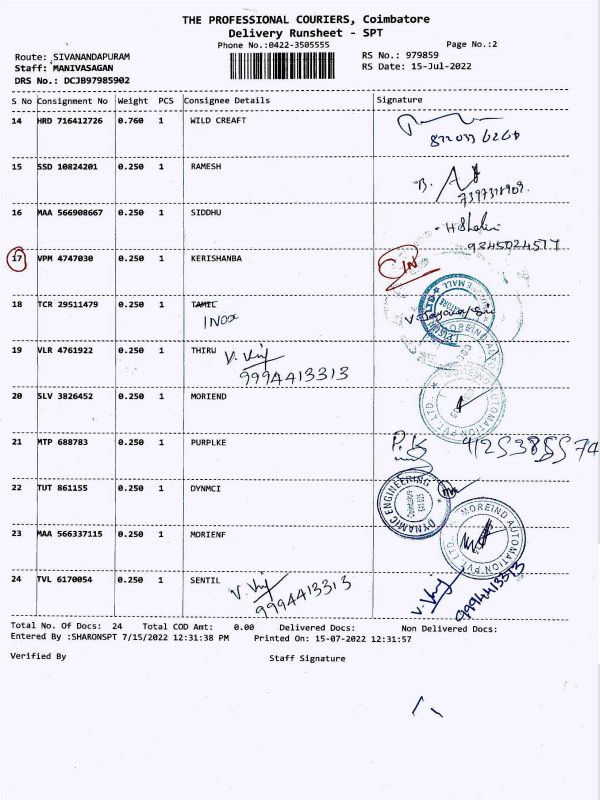 THE PROFESSIONAL COURIERS, Coimbatore
Delivery Runsheet - SPT
Phone No.:0422-3505555 Page No.:2
Route: SIVANANDAPURAM RS No.: 979859
Staff: MANIVASAGAN RS Date: 15-Jul-2022
DRS No.: DCJB97985902
S No Consignment No Weight PCS Consignee Details Signature
14 HRD 716412726 0.760 1 WILD CREAFT
15 SSD 10824201 0.250 1 RAMESH
7397318909
16 MAA 566908667 0.250 1 SIDDHU
9345024577
17 VPM 4747030 0.250 1 KERISHANBA IN
18 TCR 29511479 0.250 1 TAMIL
INOX
19 VLR 4761922 0.250 1 THIRU
9994413313
20 SLV 3826452 0.250 1 MORIEND
21 MTP 688783 0.250 1 PURPLKE
22 TUT 861155 0.250 1 DYNMCI
DYNAMIC ENGINEERING
23 MAA 566337115 0.250 1 MORIENF
MOREIND AUTOMATION PVT LTD
24 TVL 6170054 0.250 1 SENTIL
9994413313 9994413313
Total No. Of Docs: 24 Total COD Amt: 0.00 Delivered Docs: Non Delivered Docs:
Entered By :SHARONSPT 7/15/2022 12:31:38 PM Printed On: 15-07-2022 12:31:57
Verified By Staff Signature